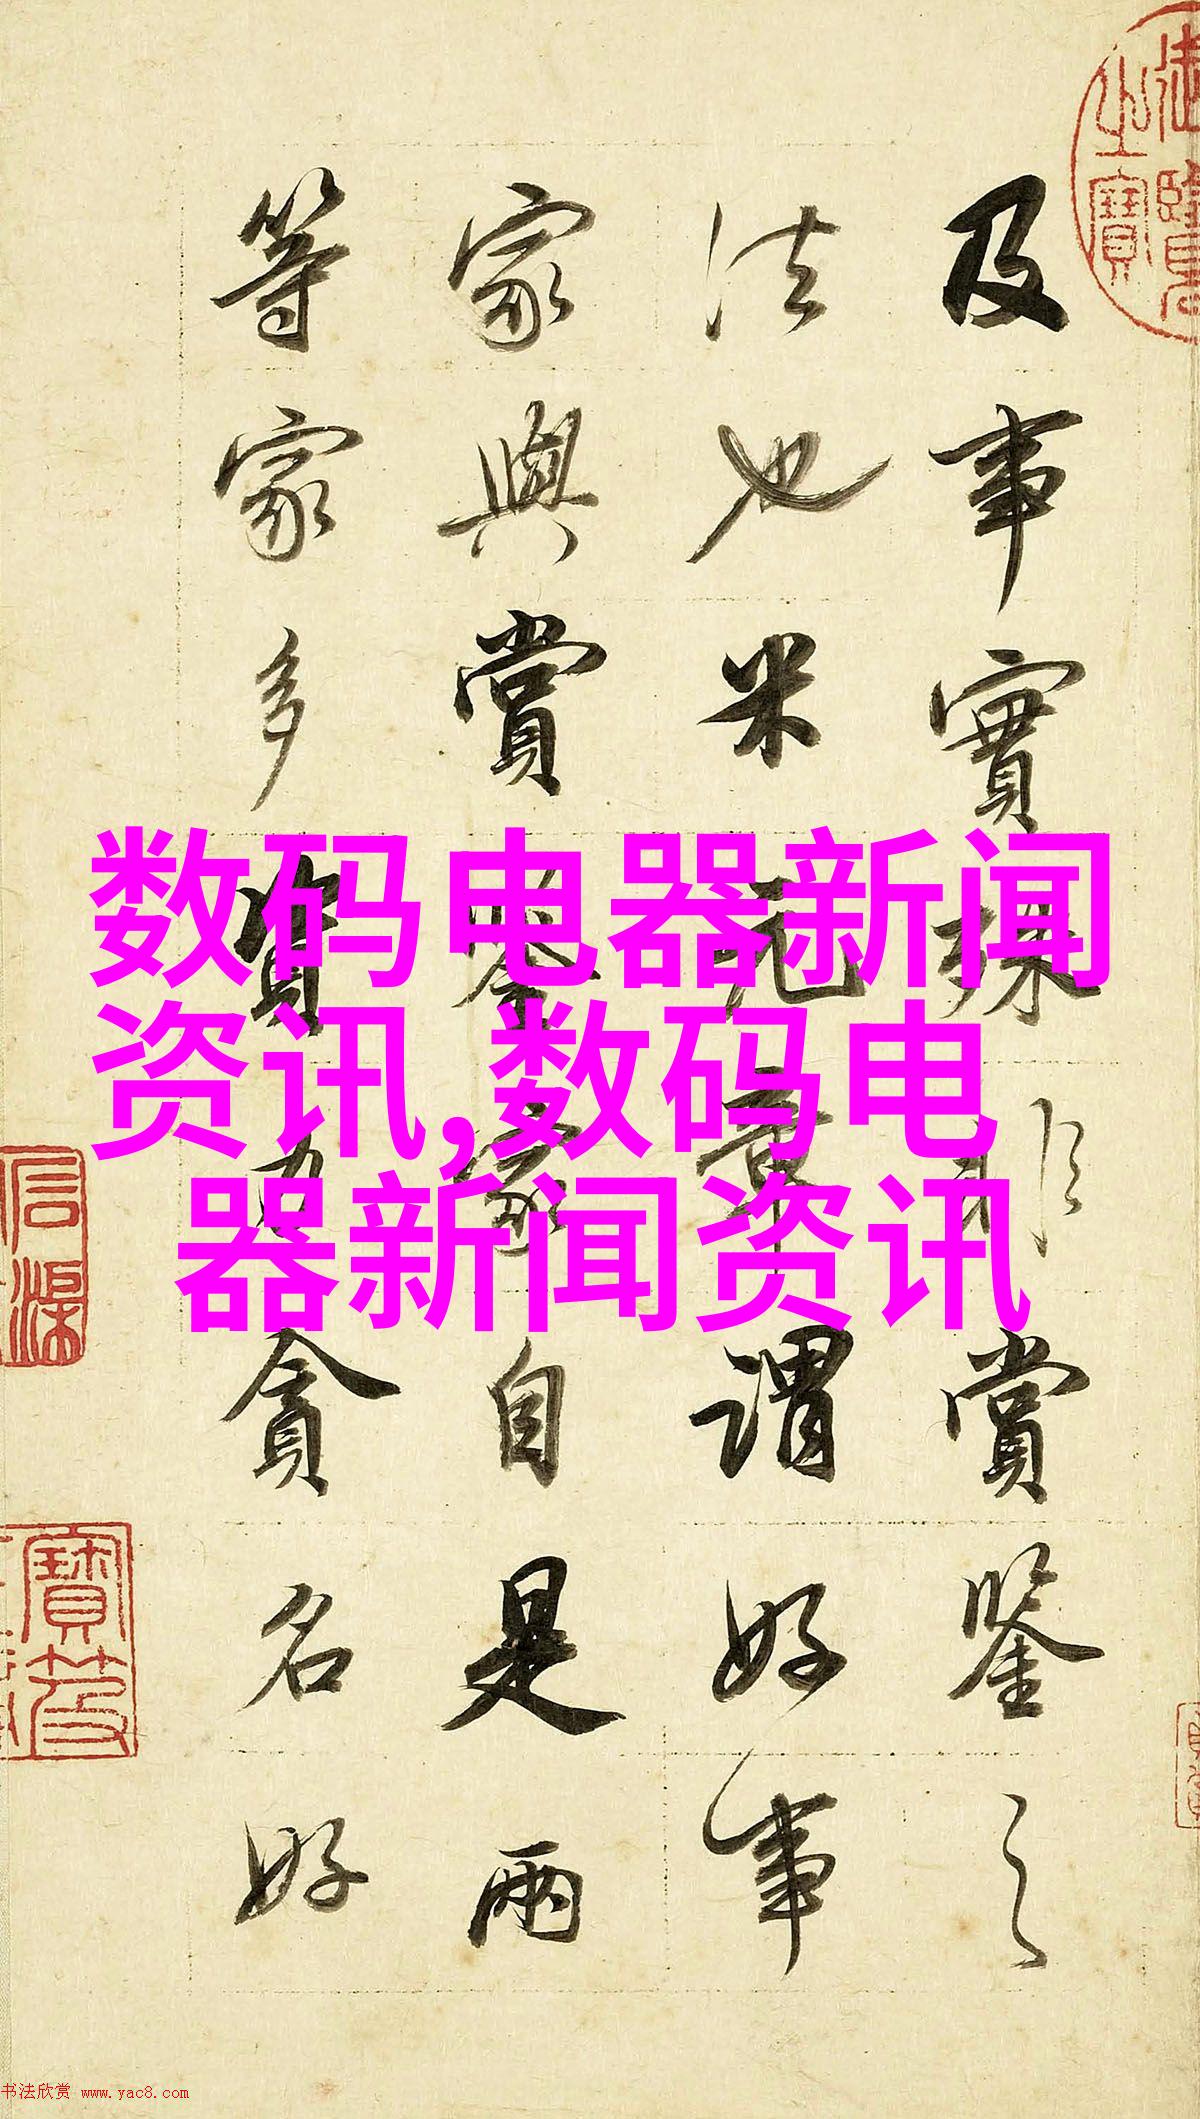 及事實殊非賞鑒之
法也米元章謂好事
家與賞鑒家自是兩
等家多資力貪名好
数码电器新闻
资讯,数码电
器新闻资讯
书法欣赏 www.yac8.com